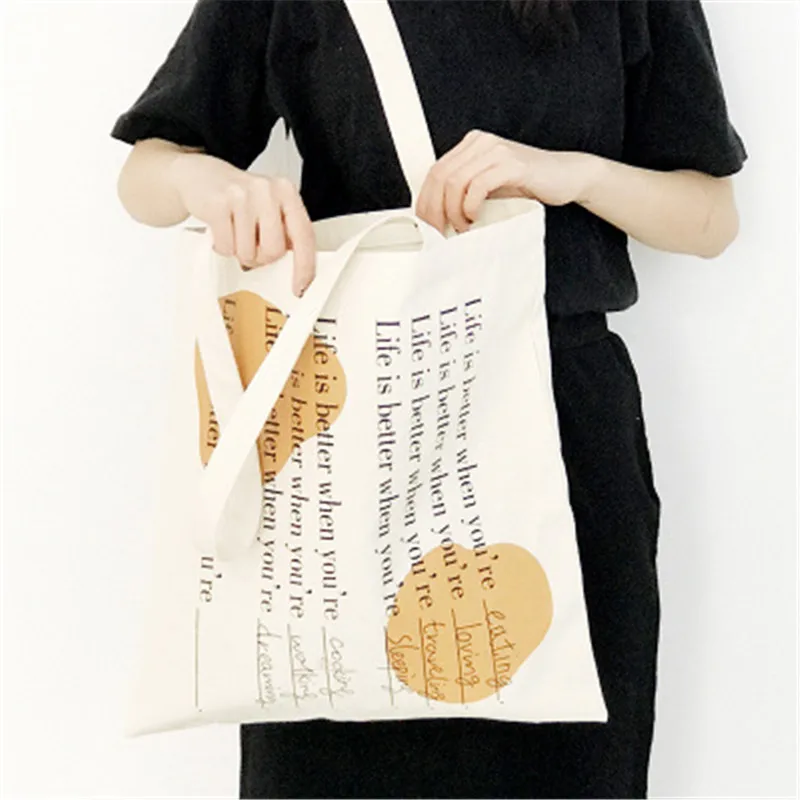 Life is better when you're eating.
Life is better when you're loving.
Life is better when you're traveling.
Life is better when you're sleeping.
Life is better when you're coding.
Life is better when you're
Life better when you're dreaming.